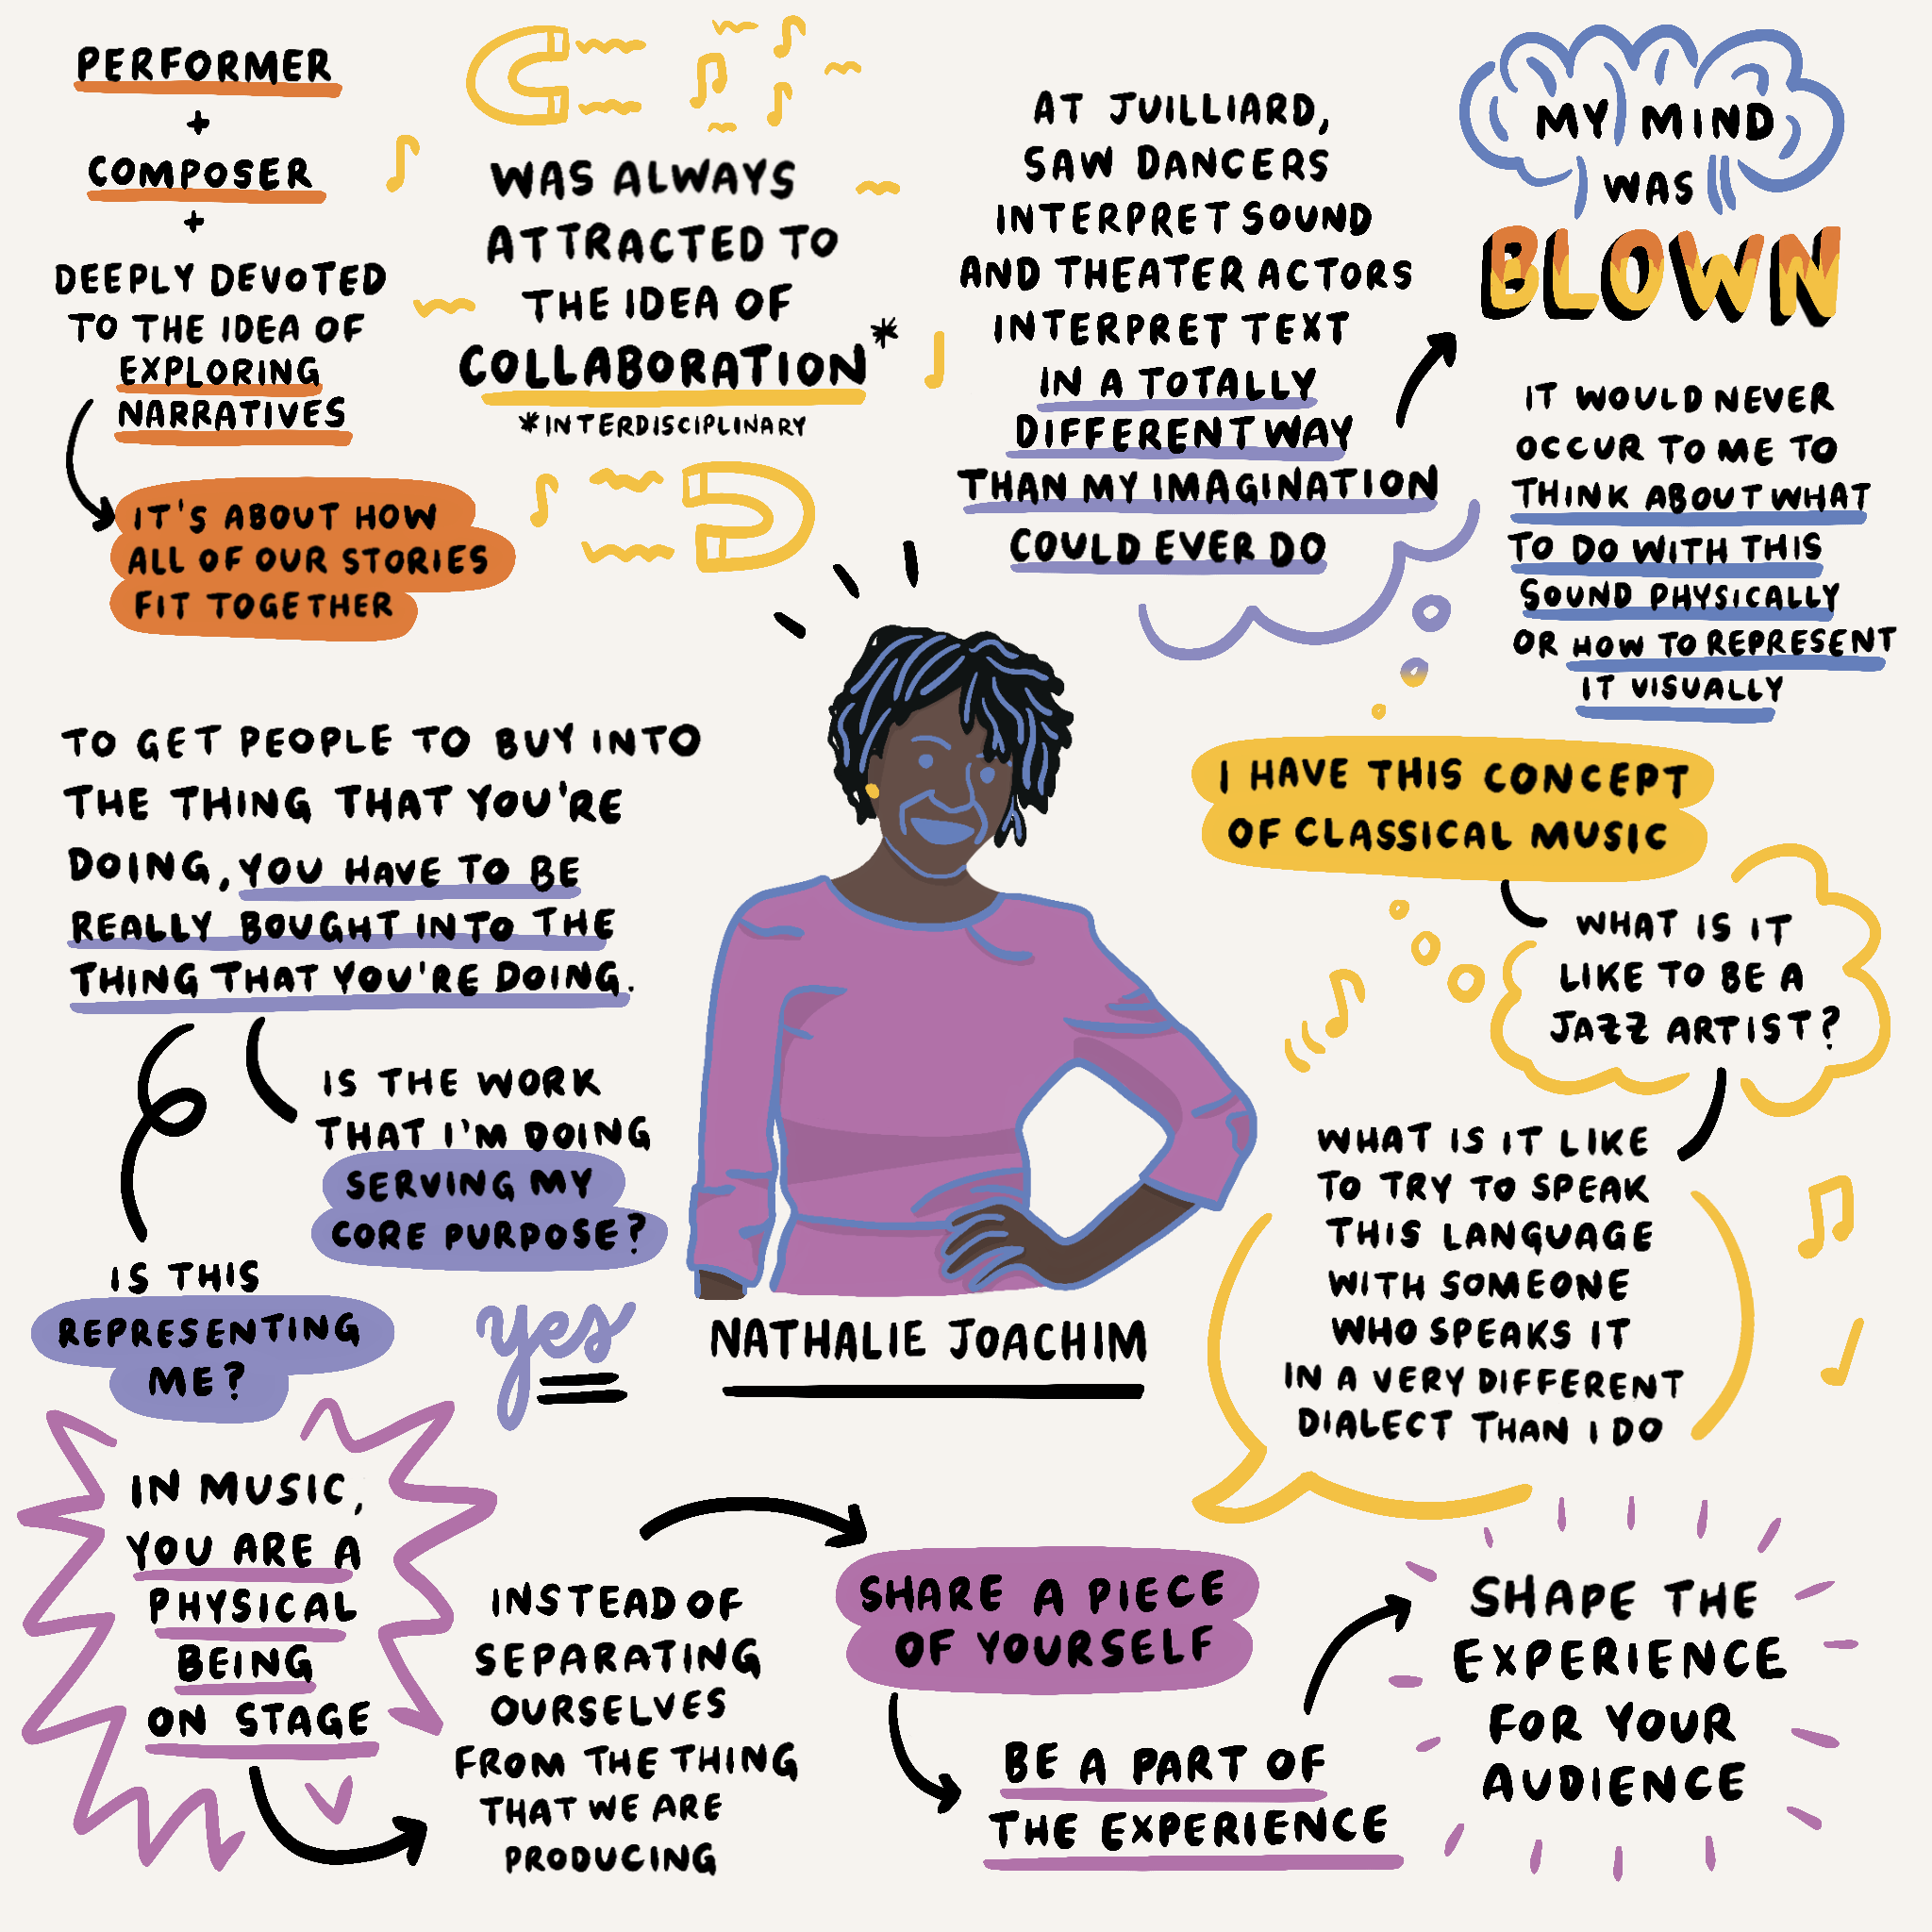 PERFORMER
+
COMPOSER
+
DEEPLY DEVOTED
TO THE IDEA OF
EXPLORING
NARRATIVES
IT'S ABOUT HOW
ALL OF OUR STORIES
FIT TOGETHER
WAS ALWAYS
ATTRACTED TO
THE IDEA OF
COLLABORATION*
*INTERDISCIPLINARY
AT JUILLIARD,
SAW DANCERS
INTERPRET SOUND
AND THEATER ACTORS
INTERPRET TEXT
IN A TOTALLY
DIFFERENT WAY
THAN MY IMAGINATION
COULD EVER DO
MY MIND
WAS
BLOWN
IT WOULD NEVER
OCCUR TO ME TO
THINK ABOUT WHAT
TO DO WITH THIS
SOUND PHYSICALLY
OR HOW TO REPRESENT
IT VISUALLY
I HAVE THIS CONCEPT
OF CLASSICAL MUSIC
WHAT IS IT
LIKE TO BE A
JAZZ ARTIST?
WHAT IS IT LIKE
TO TRY TO SPEAK
THIS LANGUAGE
WITH SOMEONE
WHO SPEAKS IT
IN A VERY DIFFERENT
DIALECT THAN I DO
TO GET PEOPLE TO BUY INTO
THE THING THAT YOU'RE
DOING, YOU HAVE TO BE
REALLY BOUGHT INTO THE
THING THAT YOU'RE DOING.
IS THE WORK
THAT I'M DOING
SERVING MY
CORE PURPOSE?
IS THIS
REPRESENTING
ME?
yes
NATHALIE JOACHIM
IN MUSIC,
YOU ARE A
PHYSICAL
BEING
ON STAGE
INSTEAD OF
SEPARATING
OURSELVES
FROM THE THING
THAT WE ARE
PRODUCING
SHARE A PIECE
OF YOURSELF
BE A PART OF
THE EXPERIENCE
SHAPE THE
EXPERIENCE
FOR YOUR
AUDIENCE